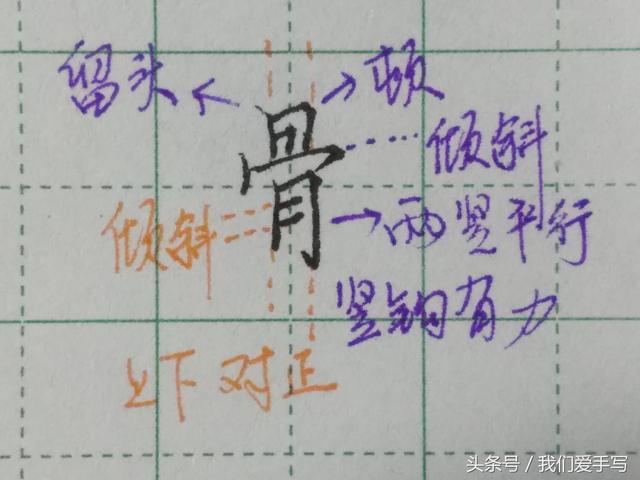 留头
顿
骨
倾斜
倾斜
两竖平行
竖钩有力
上下对正
头条号／我们爱手写